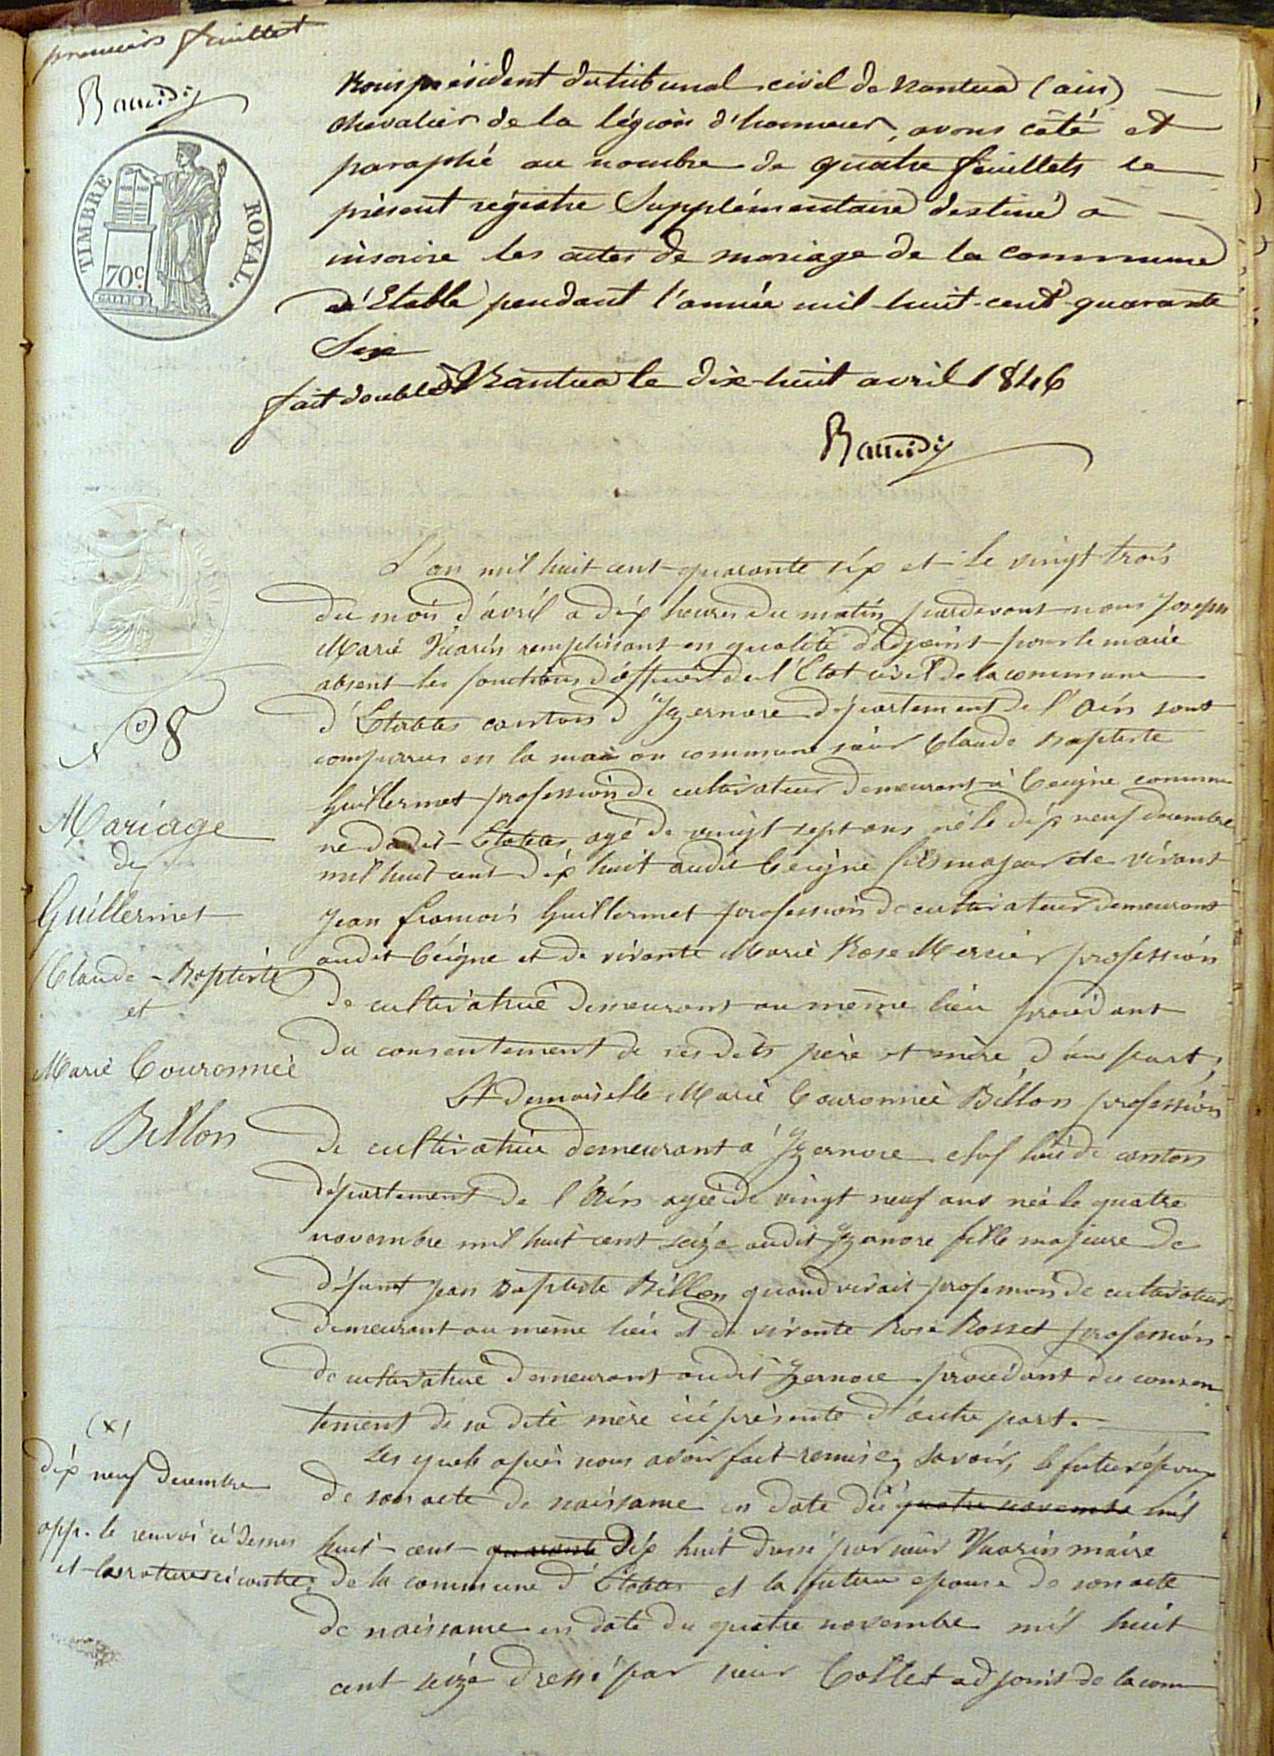 premier feuillet
TIMBRE ROYAL.
70c
Nous président du tribunal civil de Nantua (ain)
chevalier de la légion d'honneur, avons côté et
paraphé au nombre de quatre feuillets le
présent régistre Supplémentaire destiné à
inscrire les actes de mariage de la commune
d'Etable pendant l'année mil huit-cent-quarante
Six
fait double à Nantua le dix-huit avril 1846
L'an mil huit cent quarante six et le vingt trois
du mois d'avril a dix heures du matin pardevant nous Joseph
Marie Vuarin remplissant en qualité d'adjoint pour le maire
absent les fonctions d'officier de l'Etat civil de la commune
d'Etables canton d'Yzernore département de l'Ain sont
comparus en la maison commune sieur Claude Baptiste
Guillermet profession de cultivateur demeurant à Ceigne commu
ne dudit Etables agé de vingt sept ans né le dix neuf decembre
mil huit cent dix huit audit Ceigne fils majeur de vivant
Jean françois Guillermet profession de cultivateur demeurant
audit Ceigne et de vivante Marie Rose Mercier profession
de cultivatrice demeurant au même lieu procédant
du consentement de ses dits père et mère d'une part,
Et demoiselle Marie Couronnée Billon profession
de cultivatrice demeurant a Yzernore chef lieu de canton
département de l'Ain agée de vingt neuf ans née le quatre
novembre mil huit cent seize audit Yzernore fille majeure de
défunt Jean Baptiste Billon quand vivait profession de cultivateur
demeurant au même lieu et de vivante Rose Rosset profession
de cultivatrice demeurant audit Yzernore procédant du consen
tement de sa dite mère ici présente d'autre part.
Les quels après nous avoir fait remise, savoir, le futur époux
de son acte de naissance en date du quatre novembre mil
huit cent quarante dix huit dressé par sieur Vuarin maire
de la commune d'Etables et la future epouse de son acte
de naissance en date du quatre novembre mil huit
cent seize dressé par sieur Collet adjoint de la com
No 8
Mariage
de
Guillermet
Claude-Baptiste
et
Marie Couronnée
Billon
(x)
dix neuf decembre
app. le renvoi ci dessus
et les ratures ci contre